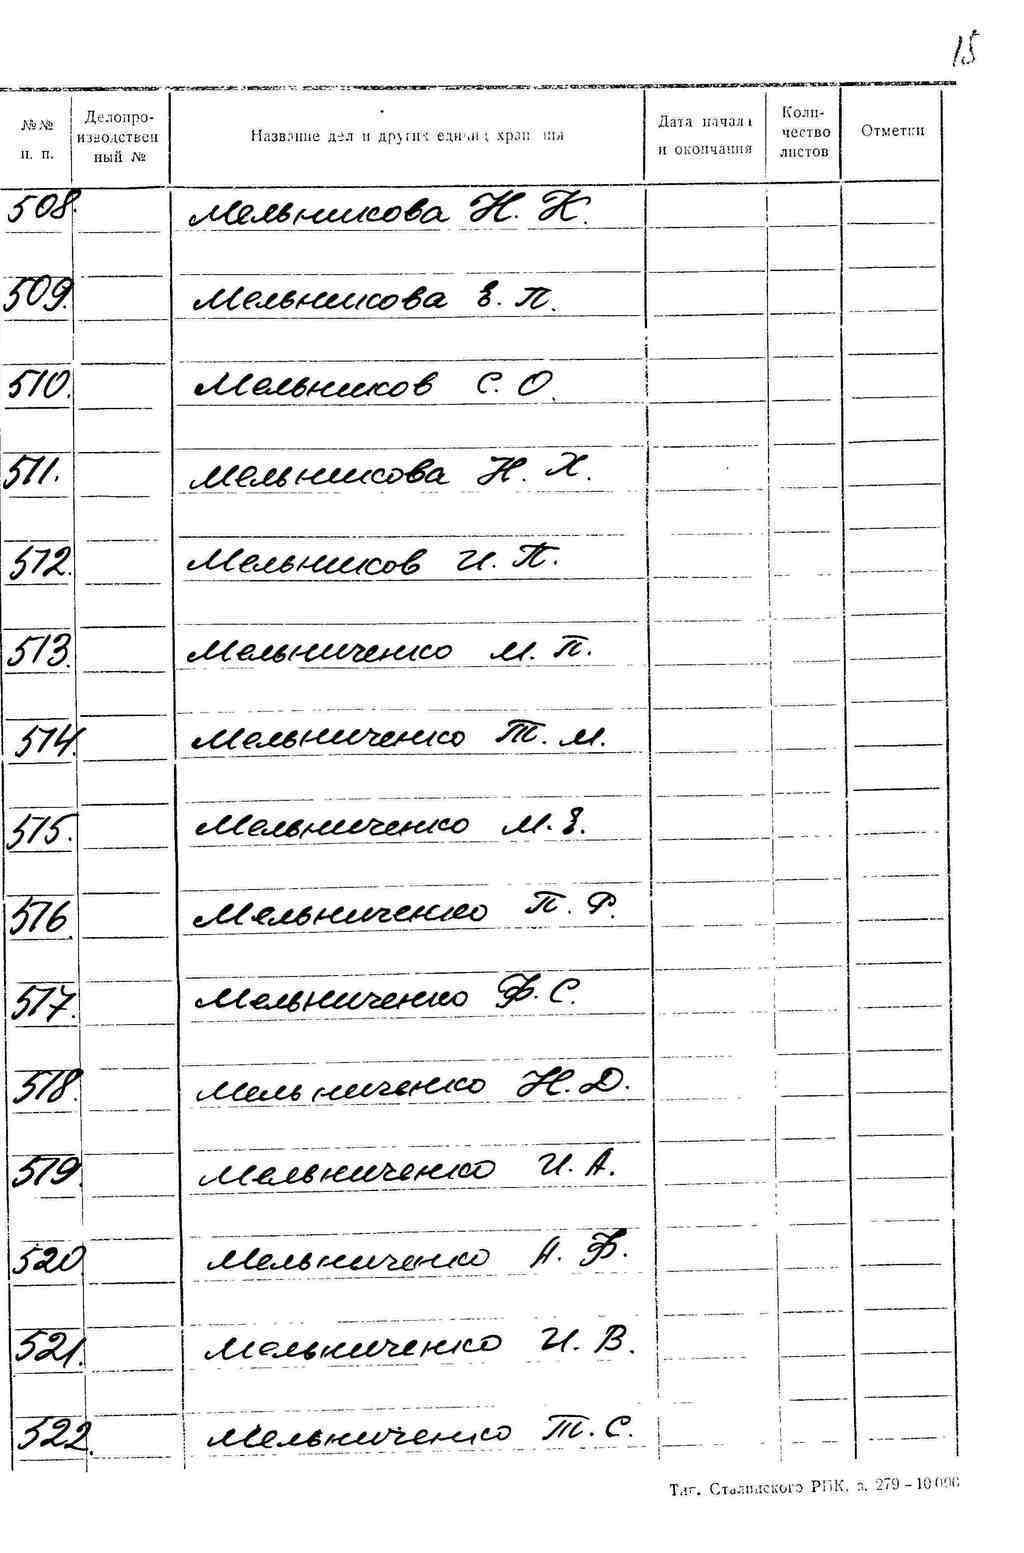 15
№№ п. п. Делопроизводствен ный № Название дел и других единиц хранения Дата начала и окончания Количество листов Отметки
508. Мельникова Н. К.
509. Мельникова Е. П.
510. Мельников С. О.
511. Мельникова Н. Х.
512. Мельников И. П.
513. Мельниченко М. П.
514. Мельниченко Т. М.
515. Мельниченко М. Е.
516 Мельниченко П. Р.
517. Мельниченко Ф. С.
518. Мельниченко Н. Д.
519. Мельниченко И. А.
520 Мельниченко А. Ф.
521. Мельниченко И. В.
522. Мельниченко Т. С.
Тип. Сталинского РПК. з. 279 – 10.000